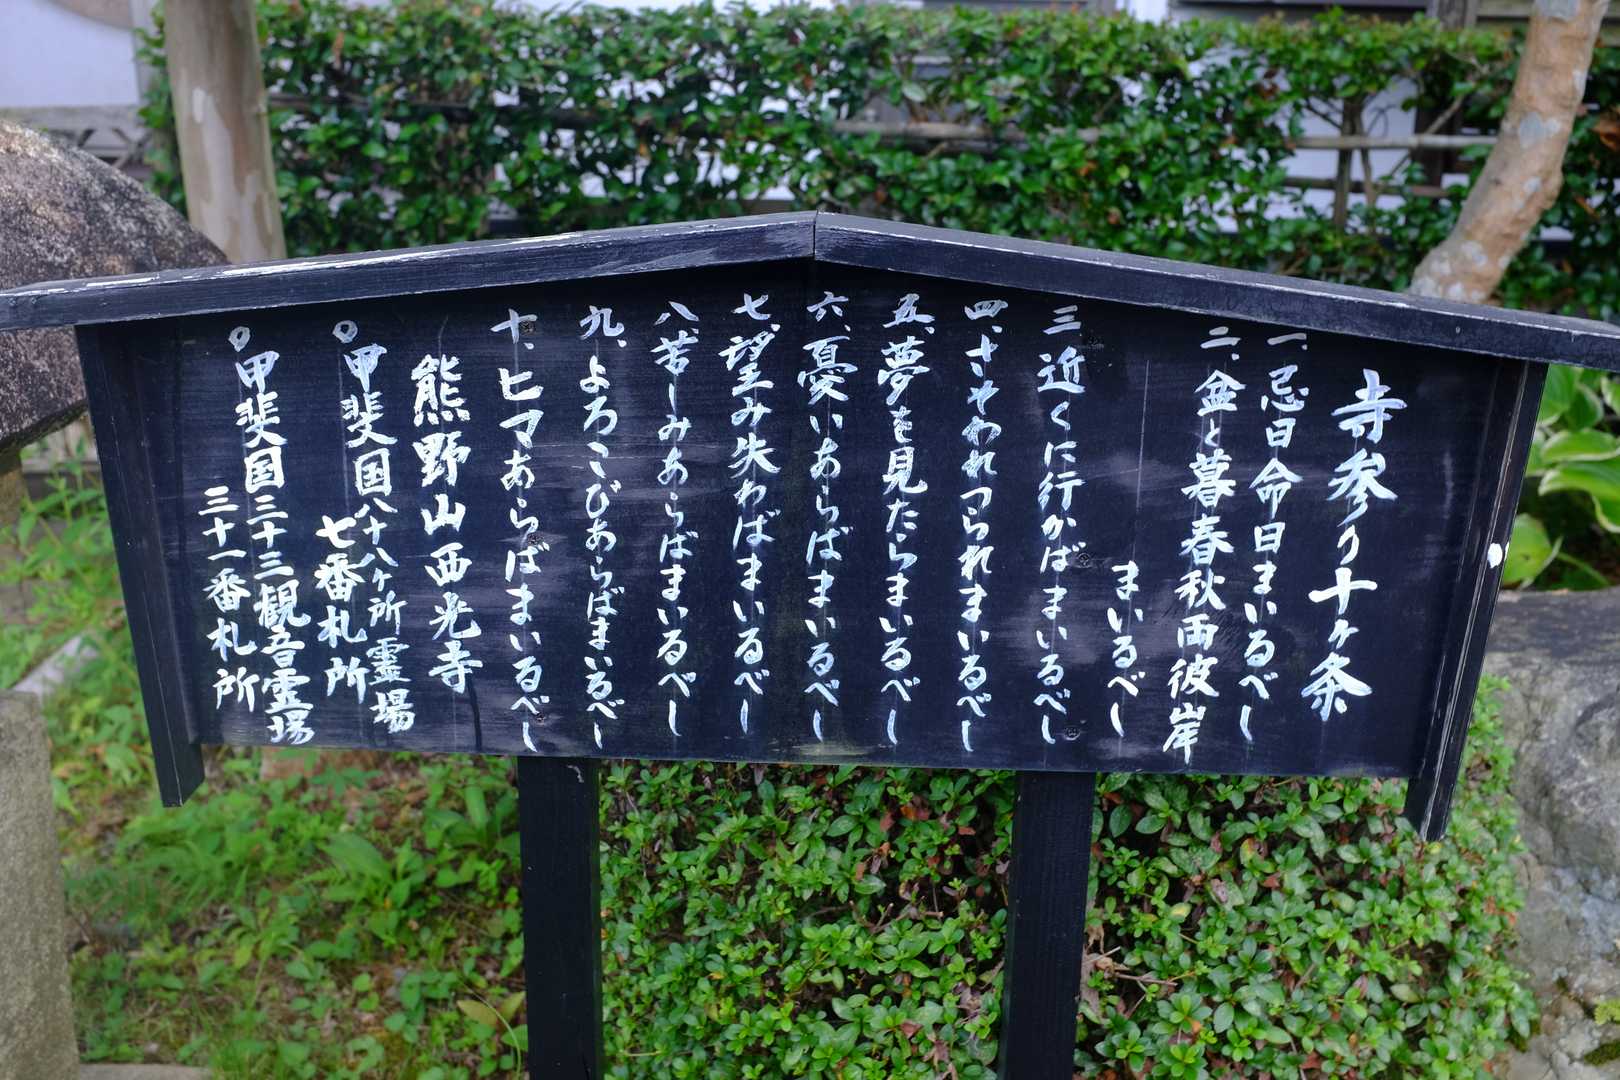 寺参り十ヶ条
一、忌日命日まいるべし
二、盆と暮春秋両彼岸
まいるべし
三、近くに行かばまいるべし
四、さそわれつられまいるべし
五、夢を見たらまいるべし
六、憂いあらばまいるべし
七、望み失わばまいるべし
八、苦しみあらばまいるべし
九、よろこびあらばまいるべし
十、ヒマあらばまいるべし
熊野山西光寺
○甲斐国八十八ヶ所霊場
七番札所
○甲斐国三十三観音霊場
三十一番札所